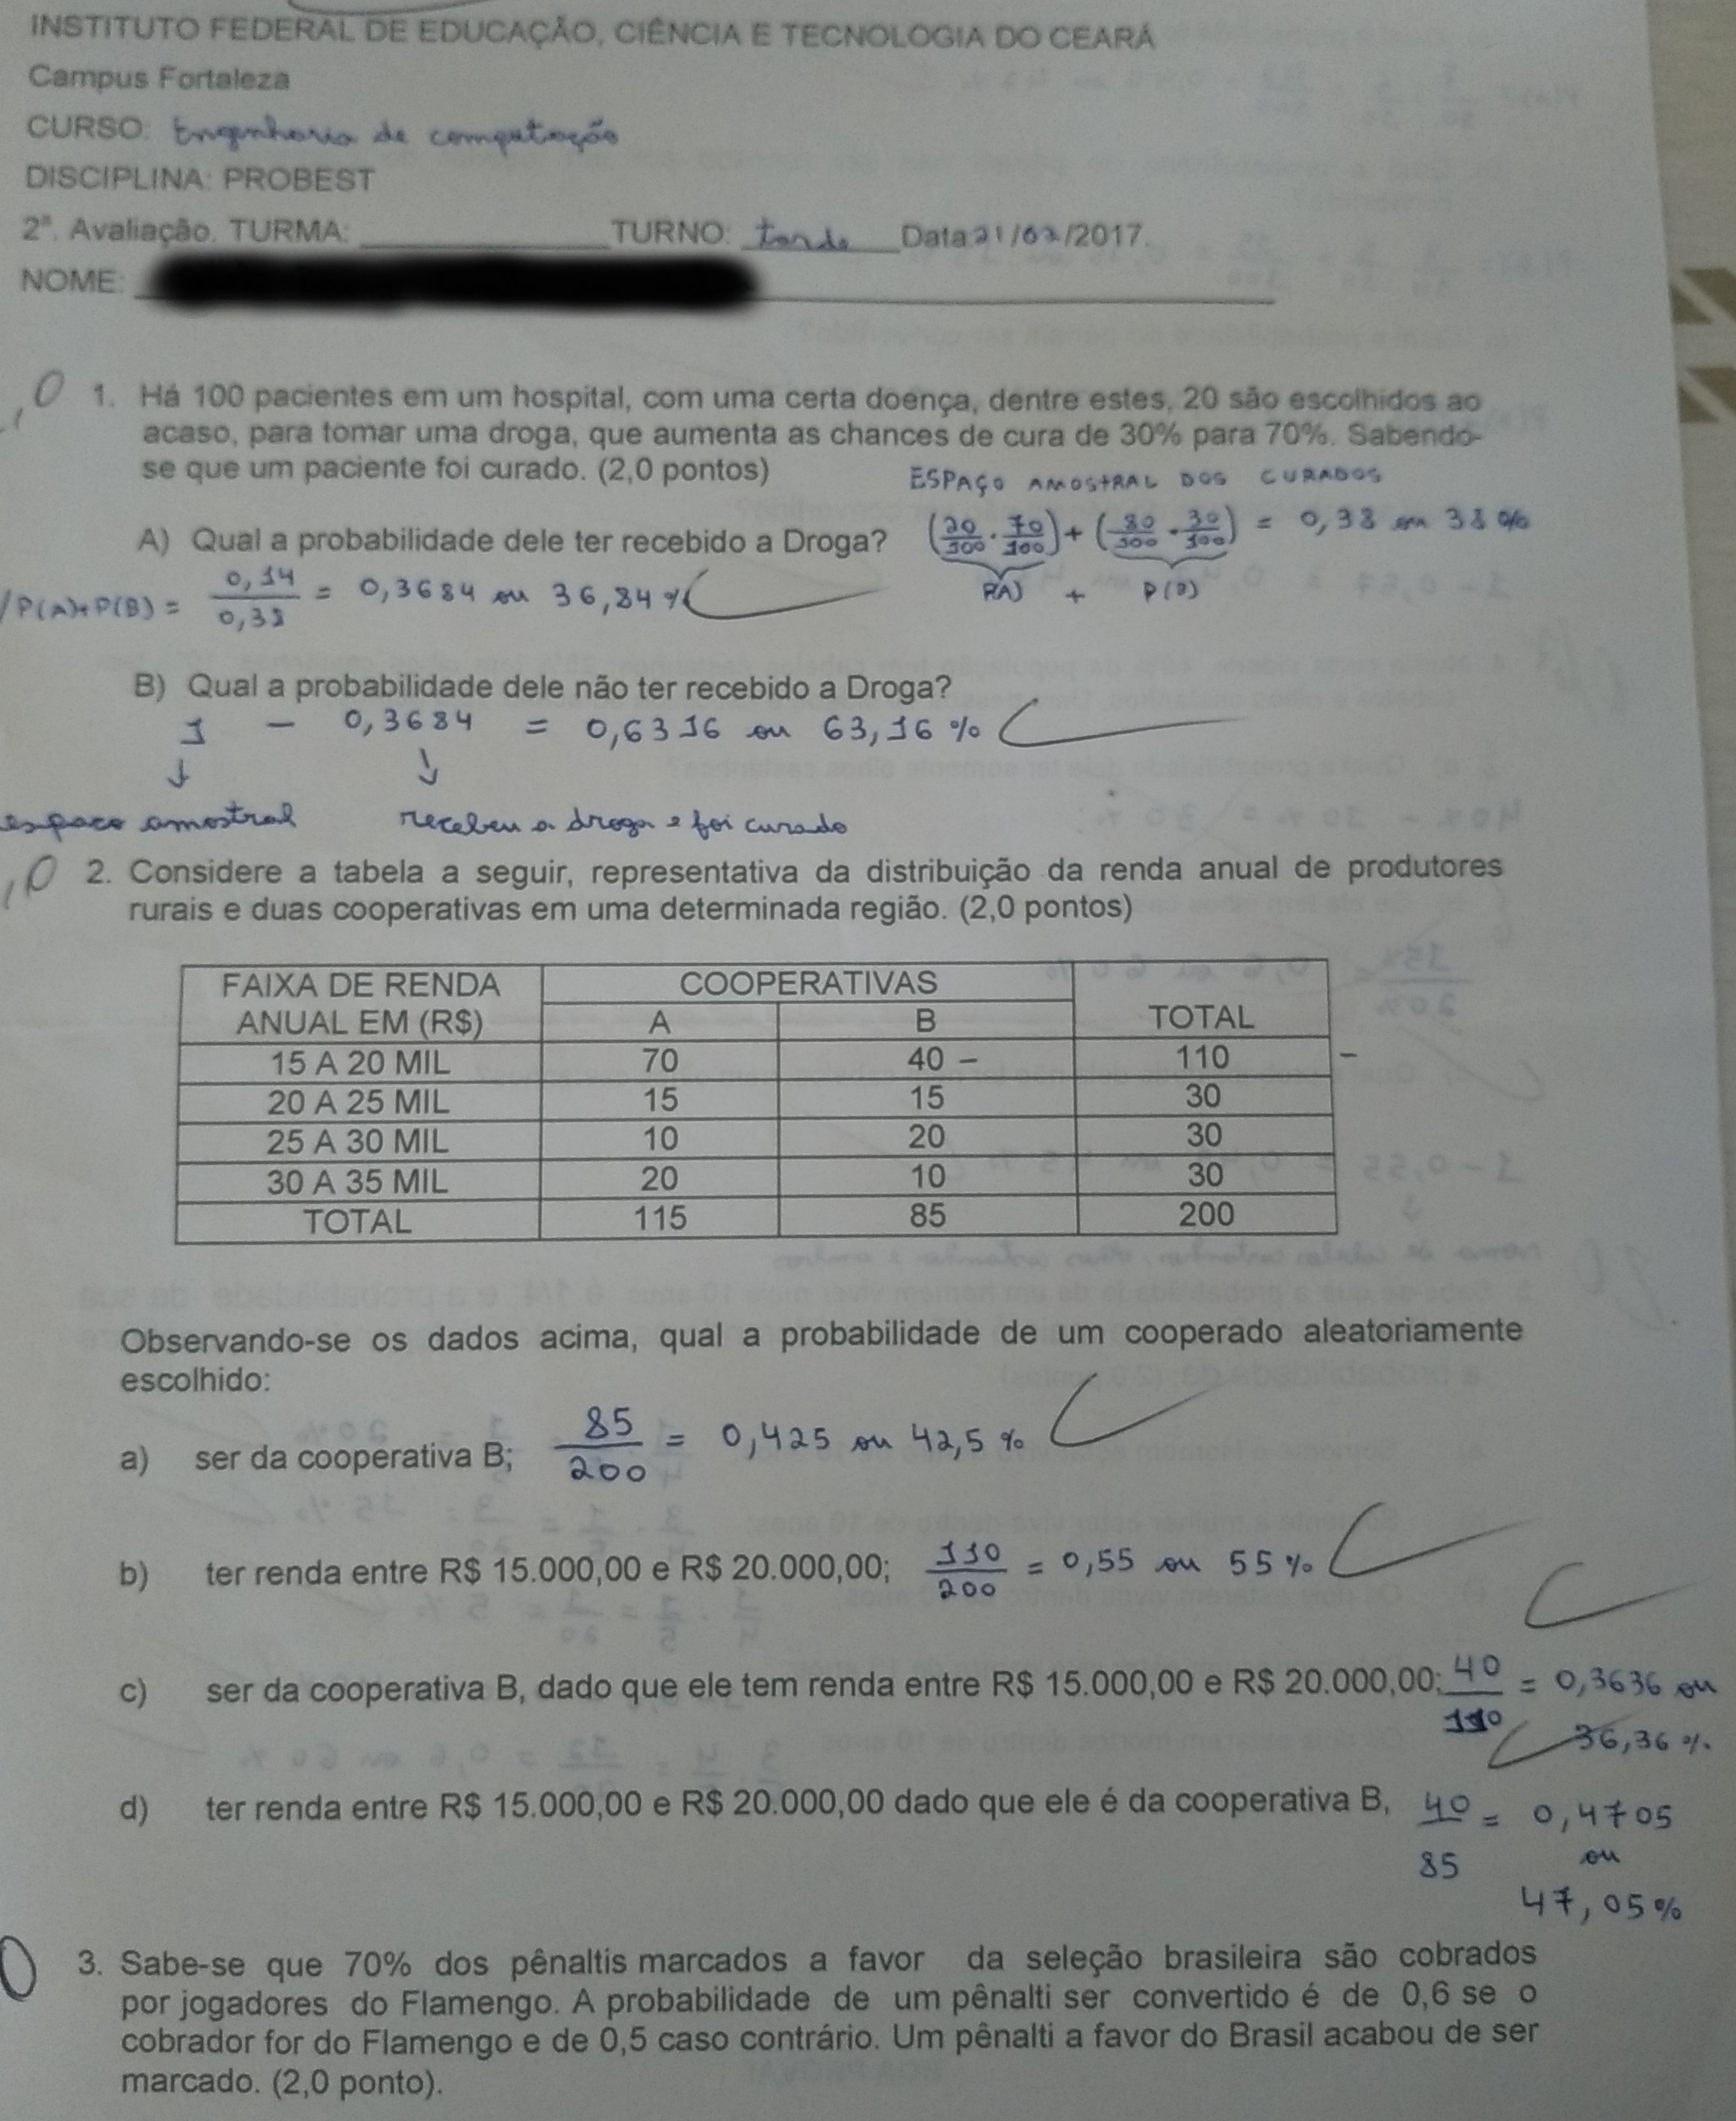 INSTITUTO FEDERAL DE EDUCAÇÃO, CIÊNCIA E TECNOLOGIA DO CEARÁ
Campus Fortaleza
CURSO: Engenharia de computação
DISCIPLINA: PROBEST
2ª. Avaliação. TURMA: ____________ TURNO: tarde Data 21/02/2017.
NOME:
1. Há 100 pacientes em um hospital, com uma certa doença, dentre estes, 20 são escolhidos ao
acaso, para tomar uma droga, que aumenta as chances de cura de 30% para 70%. Sabendo-
se que um paciente foi curado. (2,0 pontos)
ESPAÇO AMOSTRAL DOS CURADOS
A) Qual a probabilidade dele ter recebido a Droga? (20/100 · 70/100) + (80/100 · 30/100) = 0,38 ou 38 %
P(A) + P(B)
/P(A)+P(B) = 0,14/0,38 = 0,3684 ou 36,84 %
B) Qual a probabilidade dele não ter recebido a Droga?
1 – 0,3684 = 0,6316 ou 63,16 %
↓ ↓
espaco amostral receheu a droga e foi curado
2. Considere a tabela a seguir, representativa da distribuição da renda anual de produtores
rurais e duas cooperativas em uma determinada região. (2,0 pontos)
FAIXA DE RENDA COOPERATIVAS
ANUAL EM (R$) A B TOTAL
15 A 20 MIL 70 40 – 110 –
20 A 25 MIL 15 15 30
25 A 30 MIL 10 20 30
30 A 35 MIL 20 10 30
TOTAL 115 85 200
Observando-se os dados acima, qual a probabilidade de um cooperado aleatoriamente
escolhido:
a) ser da cooperativa B; 85/200 = 0,425 ou 42,5 %
b) ter renda entre R$ 15.000,00 e R$ 20.000,00; 110/200 = 0,55 ou 55 %
c) ser da cooperativa B, dado que ele tem renda entre R$ 15.000,00 e R$ 20.000,00; 40/110 = 0,3636 ou
36,36 %
d) ter renda entre R$ 15.000,00 e R$ 20.000,00 dado que ele é da cooperativa B, 40/85 = 0,4705
ou
47,05 %
3. Sabe-se que 70% dos pênaltis marcados a favor da seleção brasileira são cobrados
por jogadores do Flamengo. A probabilidade de um pênalti ser convertido é de 0,6 se o
cobrador for do Flamengo e de 0,5 caso contrário. Um pênalti a favor do Brasil acabou de ser
marcado. (2,0 ponto).